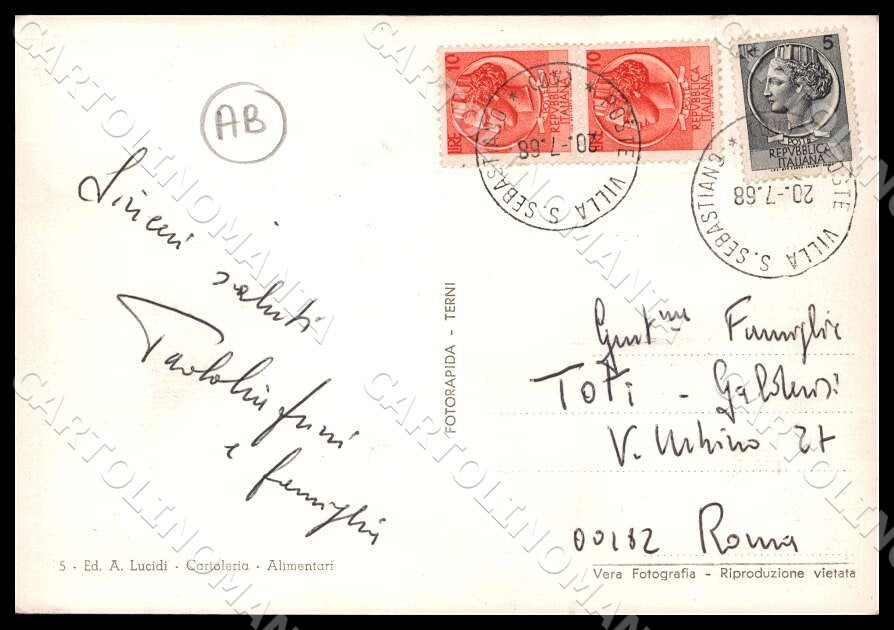 AB
Sinceri
saluti
e famiglia
LIRE 10
POSTE
REPVBBLICA
ITALIANA
LIRE 10
POSTE
REPVBBLICA
ITALIANA
5
POSTE
REPVBBLICA
ITALIANA
* POSTE VILLA S. SEBASTIANO *
20.-7.68
* POSTE VILLA S. SEBASTIANO
20.-7.68
FOTORAPIDA - TERNI
Gent.ma Famiglia
TOTI -
V. Urbino 27
00182 Roma
5 - Ed. A. Lucidi - Cartoleria - Alimentari
Vera Fotografia - Riproduzione vietata
CARTOLINOMANIA